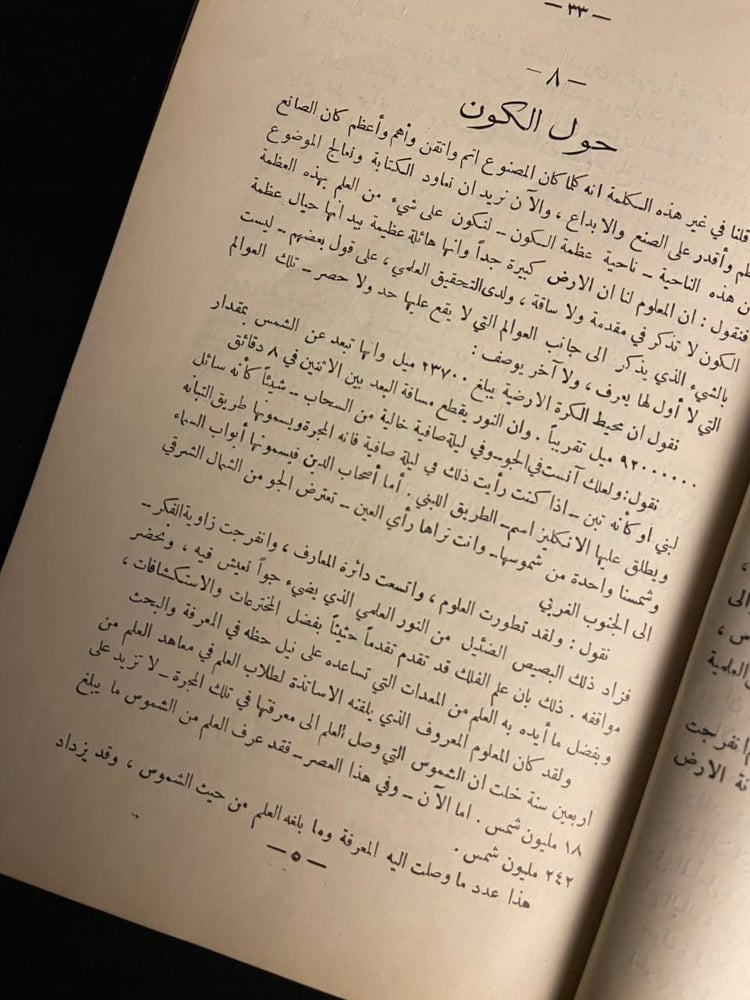 — ٣٣ —
— ٨ —
حول الكون
قلنا في غير هذه الكلمة انه كلما كان المصنوع اتم واتقن وأهم وأعظم كان الصانع
وأقدر على الصنع والابداع ، والآن نريد ان نعاود الكتابة ونعالج الموضوع
هذه الناحية — ناحية عظمة الكون — لنكون على شيء من العلم بهذه العظمة
فنقول : ان المعلوم لنا ان الارض كبيرة جداً وانها هائلة عظيمة بيد انها حيال عظمة
الكون لا تذكر في مقدمة ولا ساقة ، ولدى التحقيق العلمي ، على قول بعضهم — ليست
بالشيء الذي يذكر الى جانب العوالم التي لا يقع عليها حد ولا حصر — تلك العوالم
التي لا أول لها يعرف ، ولا آخر يوصف :
نقول ان محيط الكرة الارضية يبلغ ٢٣٧٠٠ ميل وانها تبعد عن الشمس بمقدار
٩٢٠٠٠٠٠٠ ميل تقريباً . وان النور يقطع مسافة البعد بين الاثنين في ٨ دقائق
نقول : ولعلك آنست في الجو — وفي ليلة صافية خالية من السحاب — شيئاً كأنه سائل
لبني او كأنه تبن — اذا كنت رأيت ذلك في ليلة صافية فانه المجرة ويسمونها طريق التبانه
ويطلق عليها الانكليز اسم — الطريق اللبني . أما أصحاب الدين فيسمونها أبواب السماء
وشمسنا واحدة من شموسها — وانت تراها رأي العين — تعترض الجو من الشمال الشرقي
الى الجنوب الغربي
نقول : ولقد تطورت العلوم ، واتسعت دائرة المعارف ، وانفرجت زاوية الفكر —
فزاد ذلك البصيص الضئيل من النور العلمي الذي يضيء جواً نعيش فيه ، ونحضر
مواقفه . ذلك بان علم الفلك قد تقدم تقدماً حثيثاً بفضل المخترعات والاستكشافات ،
وبفضل ما أيده به العلم من المعدات التي تساعده على نيل حظه في المعرفة والبحث
ولقد كان المعلوم المعروف الذي يلقنه الاساتذة لطلاب العلم في معاهد العلم من
اربعين سنة خلت ان الشموس التي وصل العلم الى معرفتها في تلك المجرة — لا تزيد على
١٨ مليون شمس . اما الآن — وفي هذا العصر — فقد عرف العلم من الشموس ما يبلغ
٢٤٢ مليون شمس .
هذا عدد ما وصلت اليه المعرفة وما بلغه العلم من حيث الشموس ، وقد يزداد
— ٥ —
الى
العلمية
انفرجت
الارض